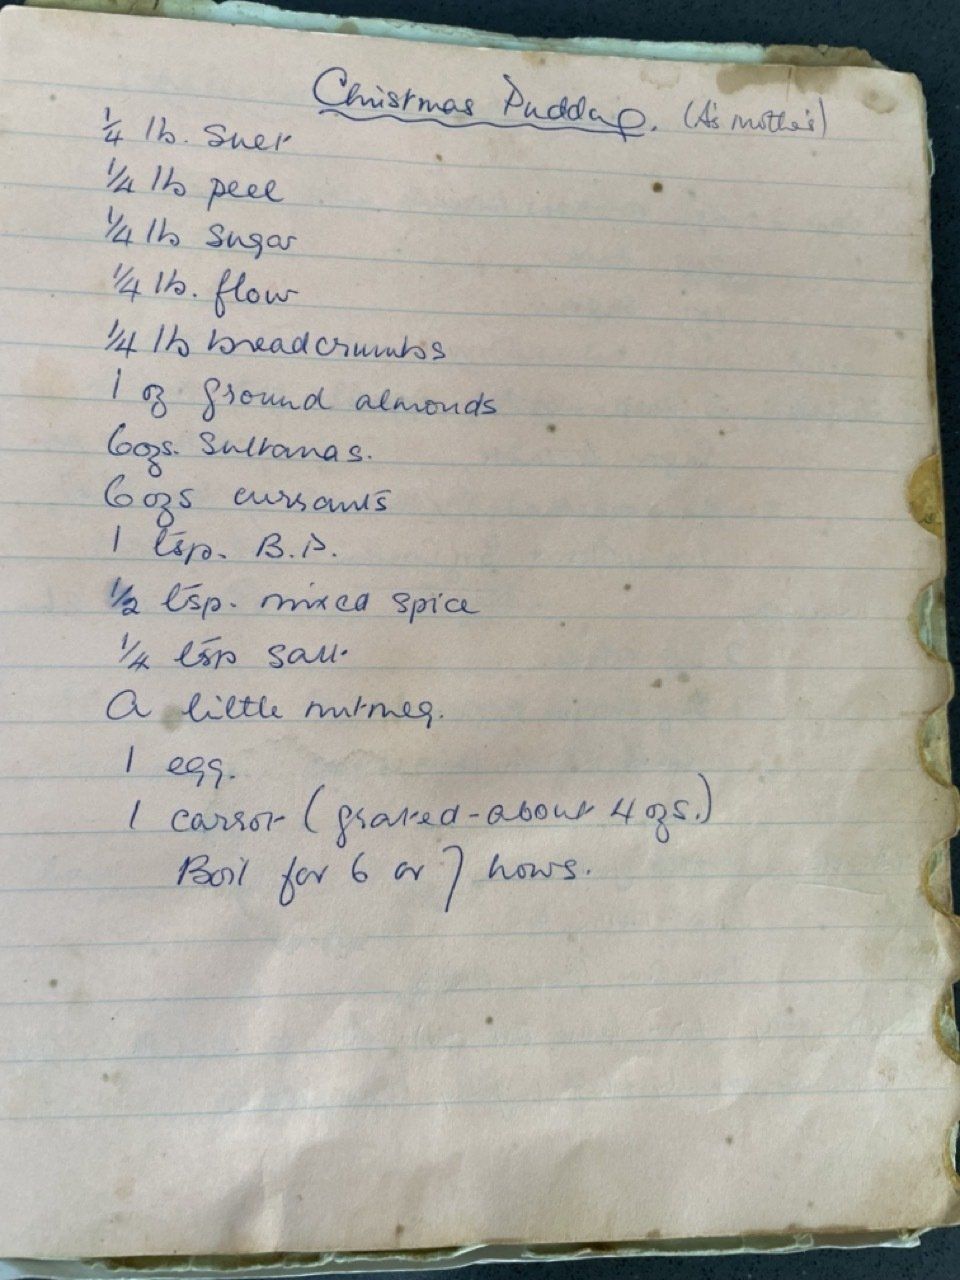 Christmas Pudding. (A's mother's)
1/4 lb. suet
1/4 lb peel
1/4 lb sugar
1/4 lb. flour
1/4 lb breadcrumbs
1 oz ground almonds
6ozs. sultanas.
6 ozs currants
1 tsp. B.P.
1/2 tsp. mixed spice
1/4 tsp salt
A little nutmeg.
1 egg.
1 carrot (grated - about 4 ozs.)
Boil for 6 or 7 hours.